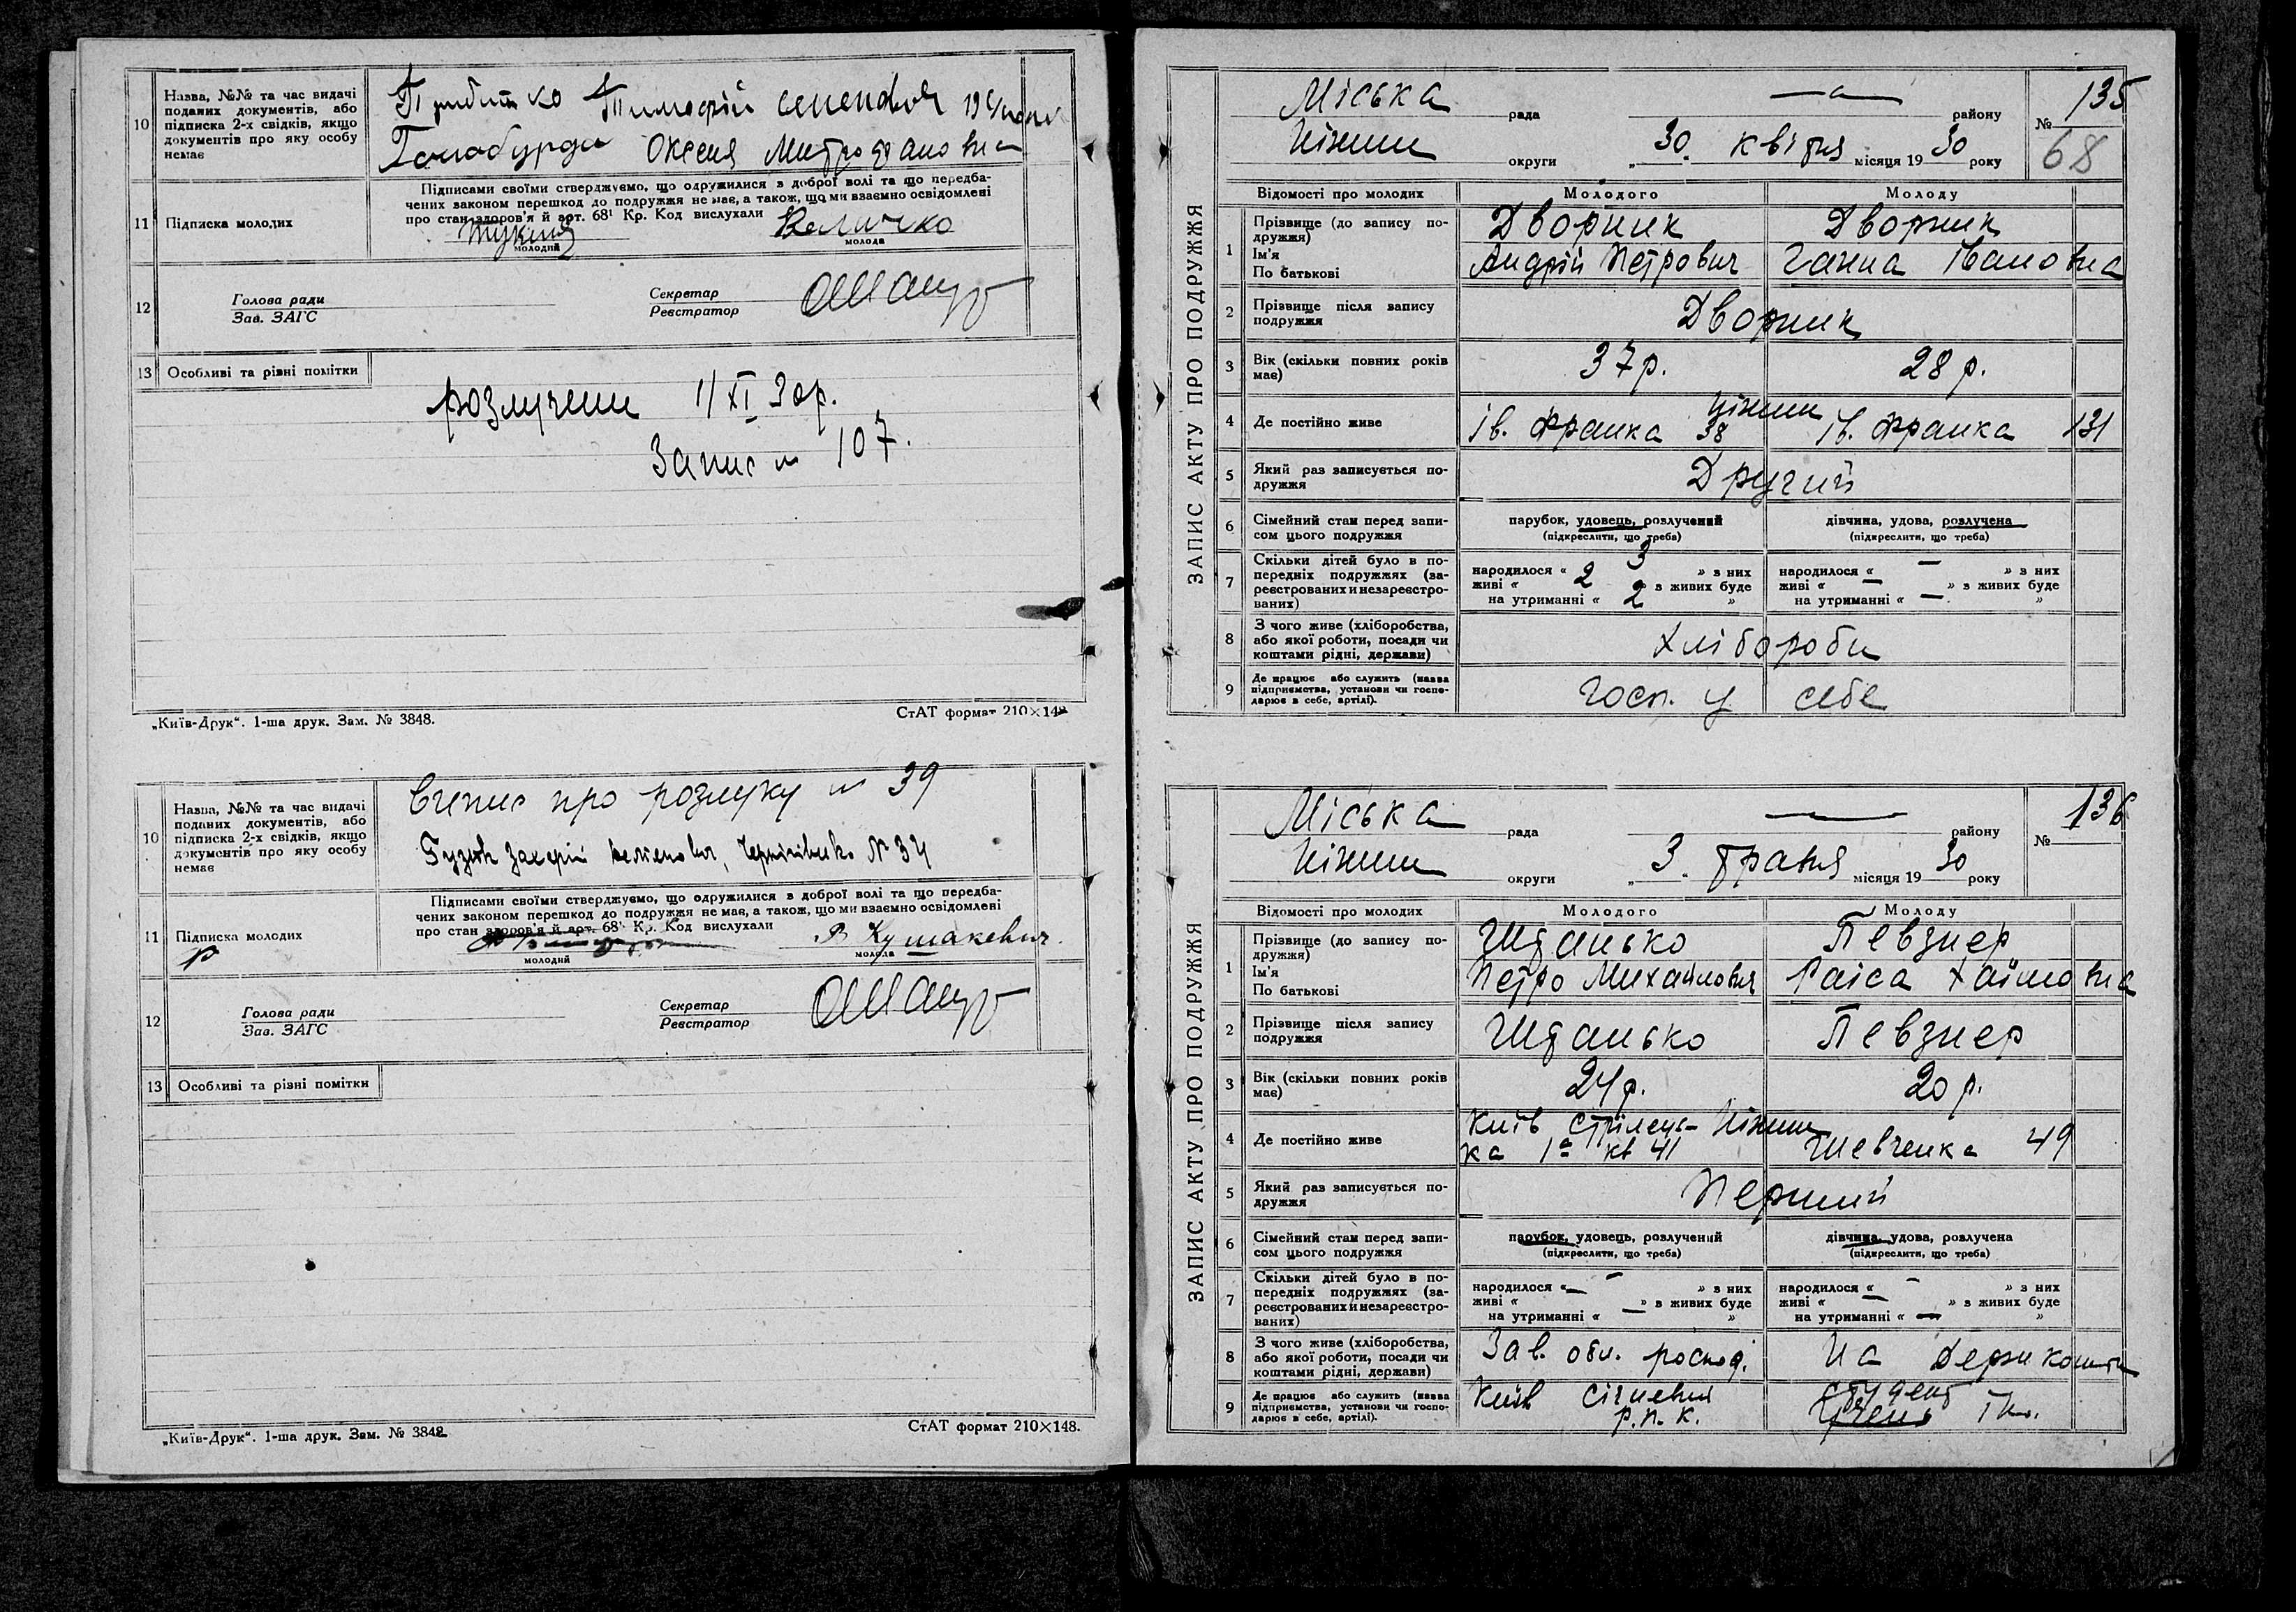 10
Назва, №№ та час видачі
поданих документів, або
підписка 2-х свідків, якщо
документів про яку особу
немає
Тимофій
Оксеня Митрофановна
11
Підписка молодих
Підписами своїми стверджуємо, що одружилися з доброї волі та що передба-
чених законом перешкод до подружжя не має, а також, що ми взаємно освідомлені
про стан здоров'я й арт. 68¹ Кр. Код вислухали
Величко
молодий
молода
12
Голова ради
Зав. ЗАГС
Секретар
Реєстратор
13
Особливі та різні помітки
розлучени 1/XI 30р.
Запис № 107.
„Київ-Друк“. 1-ша друк. Зам. № 3848.
СтАТ формат 210×148
10
Назва, №№ та час видачі
поданих документів, або
підписка 2-х свідків, якщо
документів про яку особу
немає
про розлуку № 39
№ 34
11
Підписка молодих
Підписами своїми стверджуємо, що одружилися з доброї волі та що передба-
чених законом перешкод до подружжя не має, а також, що ми взаємно освідомлені
про стан здоров'я й арт. 68¹ Кр. Код вислухали
Р Кушакевич.
молодий
молода
12
Голова ради
Зав. ЗАГС
Секретар
Реєстратор
13
Особливі та різні помітки
„Київ-Друк“. 1-ша друк. Зам. № 3848.
СтАТ формат 210×148.
ЗАПИС АКТУ ПРО ПОДРУЖЖЯ
Міська рада району № 135
Ніжин округи „30. квітня місяця 1930 року
68
Відомості про молодих
Молодого
Молоду
1
Прізвище (до запису по-
дружжя)
Ім'я
По батькові
Дворник
Андрій Петрович
Дворник
Ганна Івановна
2
Прізвище після запису
подружжя
Дворник
3
Вік (скільки повних років
має)
37р.
28 р.
4
Де постійно живе
Ніжин
Ів. Франка 38
Ів. Франка 131
5
Який раз записується по-
дружжя
Другий
6
Сімейний стан перед запи-
сом цього подружжя
парубок, удовець, розлучений
(підкреслити, що треба)
дівчина, удова, розлучена
(підкреслити, що треба)
7
Скільки дітей було в по-
передніх подружжях (за-
реєстрованих и незареєстро-
ваних)
народилося « 3 » з них
живі « 2 » з живих буде
на утриманні « 2 »
народилося « — » з них
живі « — » з живих буде
на утриманні « — »
8
З чого живе (хліборобства,
або якої роботи, посади чи
коштами рідні, держави)
Хлібороби
9
Де працює або служить (назва
підприємства, установи чи госпо-
дарює в себе, артілі).
Госп. у себе
ЗАПИС АКТУ ПРО ПОДРУЖЖЯ
Міська рада району № 136
Ніжин округи „3. травня місяця 1930 року
Відомості про молодих
Молодого
Молоду
1
Прізвище (до запису по-
дружжя)
Ім'я
По батькові
Штанько
Петро Михайлович
Певзнер
Раіса Хаїмовна
2
Прізвище після запису
подружжя
Штанько
Певзнер
3
Вік (скільки повних років
має)
24р.
20 р.
4
Де постійно живе
Київ Стрілець-
ка 1а кв 41
Ніжин
Шевченка 49
5
Який раз записується по-
дружжя
Перший
6
Сімейний стан перед запи-
сом цього подружжя
парубок, удовець, розлучений
(підкреслити, що треба)
дівчина, удова, розлучена
(підкреслити, що треба)
7
Скільки дітей було в по-
передніх подружжях (за-
реєстрованих и незареєстро-
ваних)
народилося « — » з них
живі « — » з живих буде
на утриманні « »
народилося « — » з них
живі « — » з живих буде
на утриманні « — »
8
З чого живе (хліборобства,
або якої роботи, посади чи
коштами рідні, держави)
Зав.
На держ кошти
9
Де працює або служить (назва
підприємства, установи чи госпо-
дарює в себе, артілі).
Київ
р.п.к.
студент